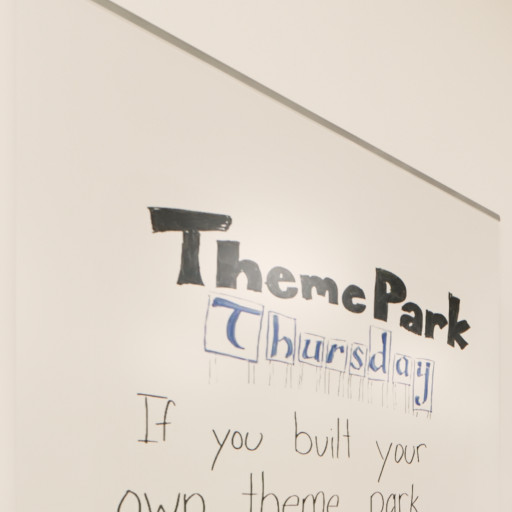 Theme Park
Thursday
If you built your
own theme park